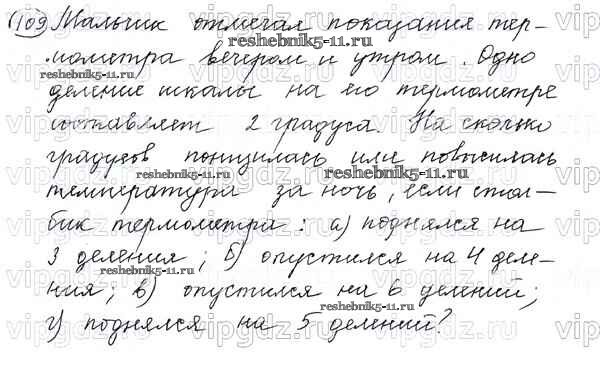 109 Мальчик отмечал показания тер-
reshebnik5-11.ru
мометра вечером и утром. Одно
reshebnik5-11.ru
деление шкалы на его термометре
составляет 2 градуса. На сколько
градусов понизилась или повысилась
reshebnik5-11.ru
температура за ночь, если стол-
бик термометра: а) поднялся на
reshebnik5-11.ru
3 деления; б) опустился на 4 деле-
reshebnik5-11.ru
ния; в) опустился на 6 делений;
reshebnik5-11.ru
г) поднялся на 5 делений?